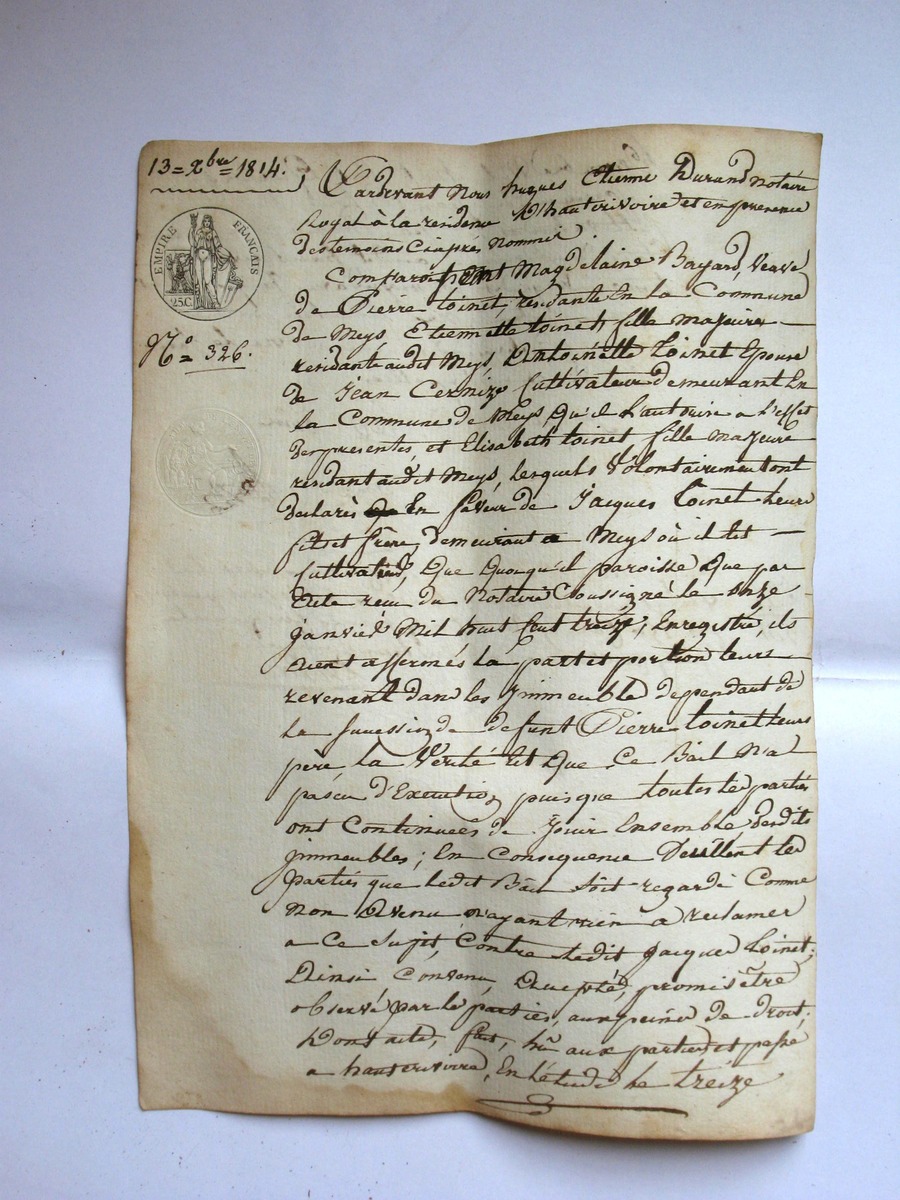 13 = Xbre = 1814.
EMPIRE FRANÇAIS
25C.
No = 326.
Pardevant Nous hugues Etienne Durand notaire
Royal à la residence d'hauterivoire et en presence
des temoins Ciapres Nommés.
Comparoissent Magdelaine Bayard, veuve
de Pierre Loinet, residante En la Commune
de Meys, Etiennette Loinet fille majeure
residante audit Meys, Antoinette Loinet Epouse
de Jean Cultivateur demeurant En
la Commune de Meys, qu'il L'autorise a L'effet
des presentes, et Elisabeth Loinet fille majeure
residant audit Meys, Lesquels Volontairement ont
declarés En faveur de Jacques Loinet leurs
fils et frère, demeurant a Meys où il Est
Cultivateur, Que Quoiqu'il paroisse Que par
Acte recu du Notaire Soussigné Le Onze
Janvier Mil huit Cent treize, Enregistré, ils
aient affermés La part et portion Leurs
revenant dans les Immeuble dependant de
La Succession de defunt Pierre Loinet Leurs
père La Vérité Est Que Ce Bail N'a
pas eu d'Execution puisque toutes les parties
ont Continuées de Jouir Ensemble desdits
Immeubles; En Consequence Veullent les
parties que Ledit Bail Soit regardé Comme
Non Avenu n'ayant rien a reclamer
a Ce Sujet, Contre Ledit Jacques Loinet;
Ainsi Convenu, Accepté, promis être
observé par les parties, aux peines de droit;
Dont acte, fait, lu aux parties et passé
a hauterivoire, En l'étude Le treize